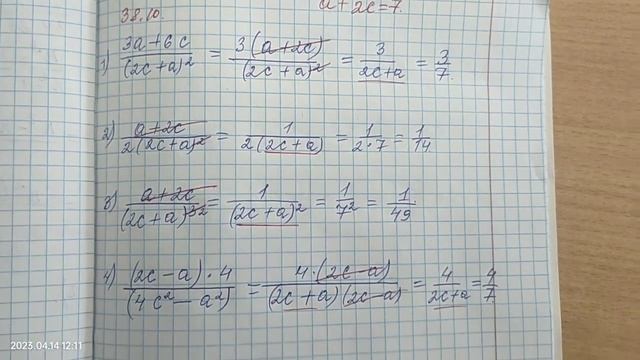 38.10.
a + 2c = 7.
1) (3a + 6c)/(2c + a)² = 3(a + 2c)/(2c + a)² = 3/(2c + a) = 3/7.
2) (a + 2c)/(2(2c + a)²) = 1/(2(2c + a)) = 1/(2·7) = 1/14
3) (a + 2c)/(2c + a)³² = 1/(2c + a)² = 1/7² = 1/49
4) ((2c − a)·4)/(4c² − a²) = (4·(2c − a))/((2c + a)(2c − a)) = 4/(2c + a) = 4/7.
2023.04.14 12:11